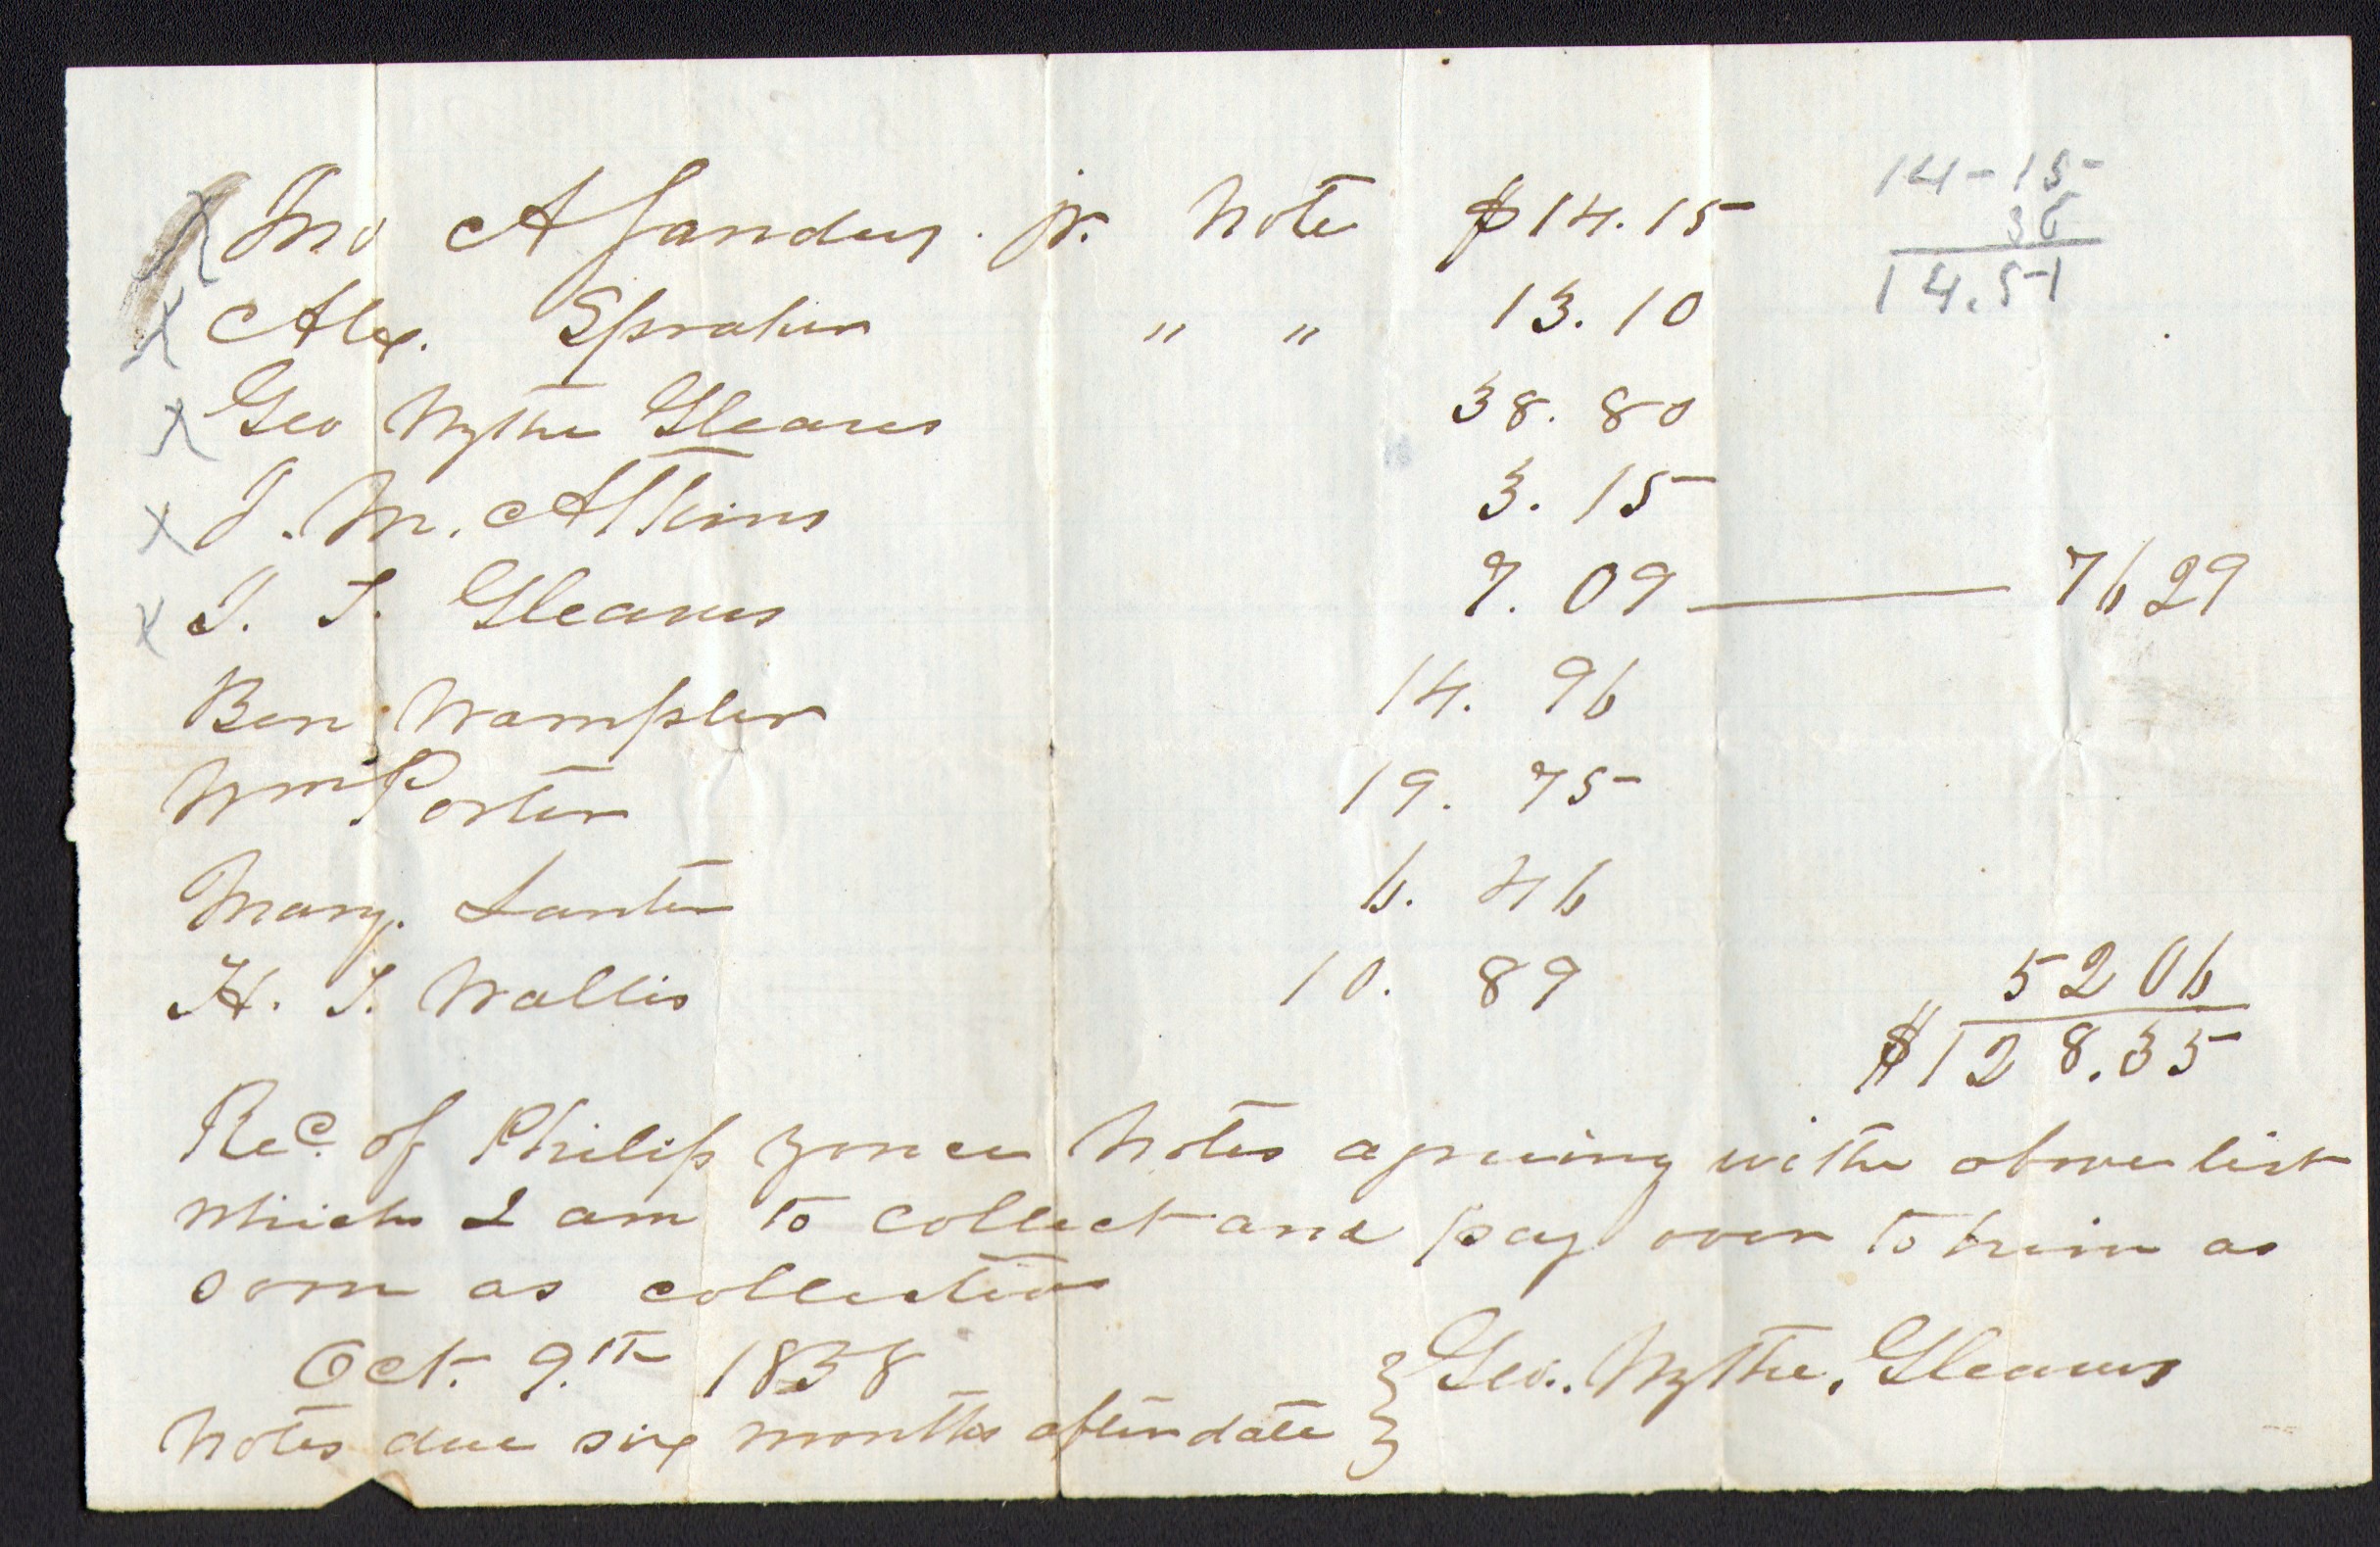 X Jno A Sanders. jr. Note $14.15
14-15
36
14.51
X Alex. Spraker " " 13.10
X Geo Wythe Gleaves 38.80
X J. M. Atkins 3.15
X J. T. Gleaves 7.09 — 7629
Ben Wampler 14.96
Wm P Porter 19.75
Mary. Lanter 6.46
H. T. Wallis 10.89 5206
$128.35
Rec. of Philip Yonce Notes agreeing withe above list
which I am to collect and pay over to him as
soon as collection
Oct. 9.th 1858 } Geo.. Wythe. Gleaves
Notes due six months after date